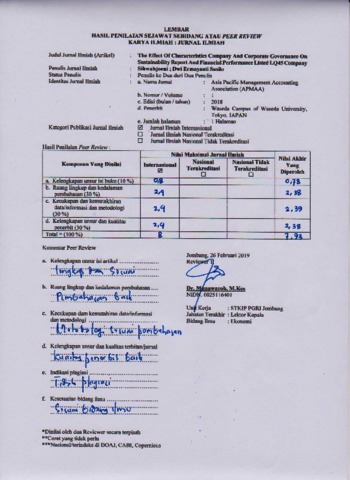 LEMBAR
HASIL PENILAIAN SEJAWAT SEBIDANG ATAU PEER REVIEW
KARYA ILMIAH : JURNAL ILMIAH
Judul Jurnal Ilmiah (Artikel) : The Effect Of Characteristics Company And Corporate Governance On
Sustainability Report And Financial Performance Listed LQ45 Company
Penulis Jurnal Ilmiah : Silowahjoeni ; Dwi Ermayanti Susilo
Status Penulis : Penulis ke Dua dari Dua Penulis
Identitas Jurnal Ilmiah : a. Nama Jurnal : Asia Pacific Management Accounting
Association (APMAA)
b. Nomor / Volume :
c. Edisi (bulan / tahun) : 2018
d. Penerbit : Waseda Campus of Waseda University,
Tokyo, JAPAN
e. Jumlah halaman : Halaman
Kategori Publikasi Jurnal Ilmiah : ☑ Jurnal Ilmiah Internasional
☐ Jurnal Ilmiah Nasional Terakreditasi
☐ Jurnal Ilmiah Nasional Tidak Terakreditasi
Hasil Penilaian Peer Review :
Komponen Yang Dinilai
Nilai Maksimal Jurnal Ilmiah
Nilai Akhir Yang Diperoleh
Internasional ☑
Nasional Terakreditasi ☐
Nasional Tidak Terakreditasi ☐
a. Kelengkapan unsur isi buku (10 %) 0,8 0,78
b. Ruang lingkup dan kedalaman
pembahasan (30 %) 2,4 2,38
c. Kecukupan dan kemutakhiran
data/informasi dan metodologi
(30 %) 2,4 2,39
d. Kelengkapan unsur dan kualitas
penerbit (30 %) 2,4 2,38
Total = (100 %) 8 7,93
Komentar Peer Review
Jombang, 26 Februari 2019
Reviewer
a. Kelengkapan unsur isi artikel
Lengkap dan Sesuai
Dr. Munawaroh, M.Kes
NIDN.
b. Ruang lingkup dan kedalaman pembahasan
Pembahasan Baik
Unit Kerja : STKIP PGRI Jombang
Jabatan Terakhir : Lektor Kepala
Bidang Ilmu : Ekonomi
c. Kecukupan dan kemutakhiran data/informasi
dan metodologi
Metodologi sesuai pembahasan
d. Kelengkapan unsur dan kualitas terbitan/jurnal
Kualitas penerbit baik
e. Indikasi plagiasi
Tidak plagiasi
f. Kesesuaian bidang ilmu
Sesuai bidang ilmu
*Dinilai oleh dua Reviewer secara terpisah
**Coret yang tidak perlu
***Nasional/terindeks di DOAJ, CABI, Copernicus